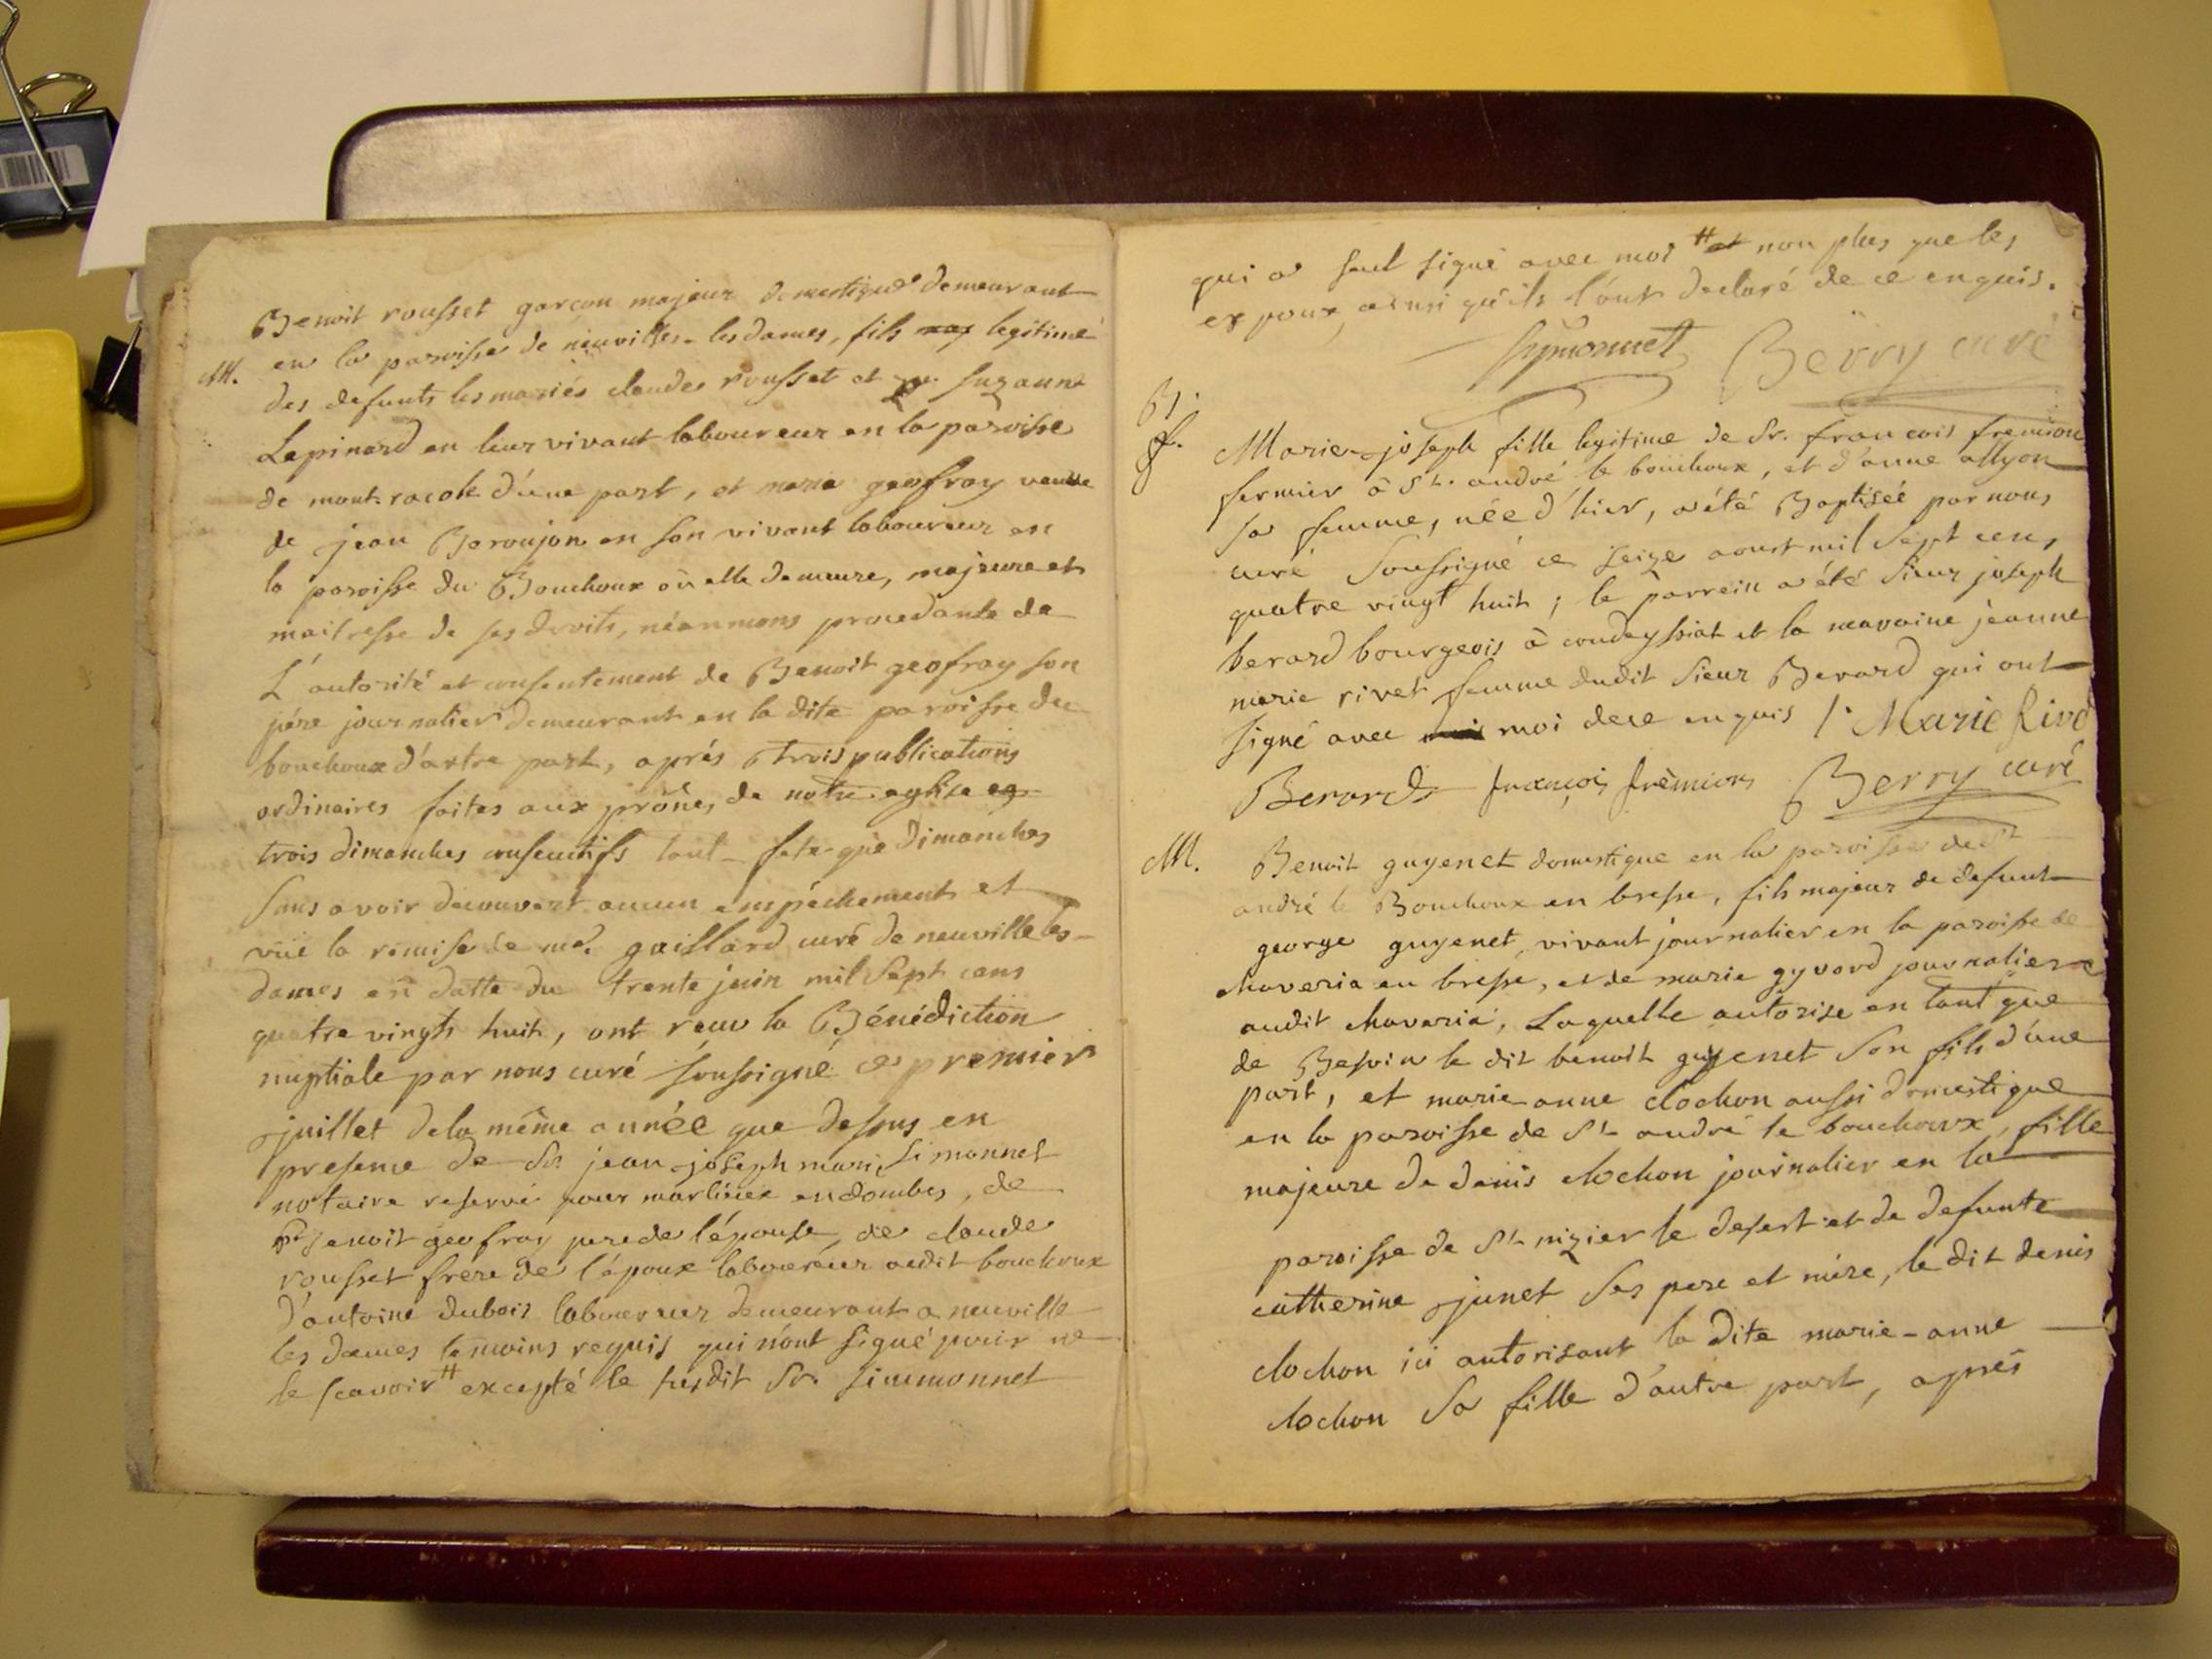 Benoit rousset garçon majeur domestique demeurant
M. en la paroisse de neuvilles-les dames, fils legitime
des defunts les mariés claude rousset et suzanne
Lapinard en leur vivant laboureur en la paroisse
de mont-racole d'une part, et marie geofray veuve
de jean Baroujon en son vivant laboureur en
la paroisse du Bouchoux où elle demeure, majeure et
maitresse de ses droits, néanmons procedante de
L'autorité et consentement de Benoit geofray son
père journalier demeurant en la dite paroisse du
bouchoux d'autre part, aprés trois publications
ordinaires faites aux prônes de notre eglise
trois dimanches consecutifs tant fete que Dimanches
Sans avoir decouvert aucun empéchement et
vüe la remise de mr. gaillard curé de neuville les-
dames en datte du trente juin mil Sept cens
quatre vingts huit, ont recu la Bénédiction
nuptiale par nous curé soussigné ce premier
juillet dela même année que dessus en
presence de Sr. jean-joseph marie Simonnet
notaire reservé pour marlieux en dombes, de
Benoit geofray pere de l'épouse, de claude
rousset frere de l'époux laboureur audit bouchoux
d'antoine dubois laboureur demeurant a neuville
les dames temoins requis qui n'ont signé pour ne
le scavoir # excepté le susdit Sr. simmonnet
qui a seul signé avec moi # et non plus que les
epoux, ainsi qu'ils l'ont declaré de ce enquis.
Symonnet Berry curé
B.
f. Marie-joseph fille legitime de Sr. francois fremion
fermier à St. andré le bouchoux, et d'anne allyon
sa femme, née d'hier, a été Baptisée par nous
curé Soussigné ce seize aoust mil Sept cens
quatre vingt huit ; le parrein a été Sieur joseph
berard bourgeois à condeyssiat et la maraine jeanne
marie rivet femme dudit Sieur Berard qui ont
signé avec moi de ce enquis j. Marie Rivet
Berard françois frèmion Berry curé
M. Benoit guyenet domestique en la paroisse de St
andré le Bouchoux en bresse, fils majeur de defunt
george guyenet, vivant journalier en la paroisse de
chaveria en bresse, et de marie gyvord journaliere
audit chaveria, Laquelle autorise en tant que
de Besoin le dit benoit guyenet Son fils d'une
part, et marie anne clochon aussi domestique
en la paroisse de St andré le bouchoux, fille
majeure de denis clochon journalier en la
paroisse de St nizier le desert et de defunte
catherine junet Ses pere et mére, le dit denis
clochon ici autorisant la dite marie-anne
clochon Sa fille d'autre part, aprés